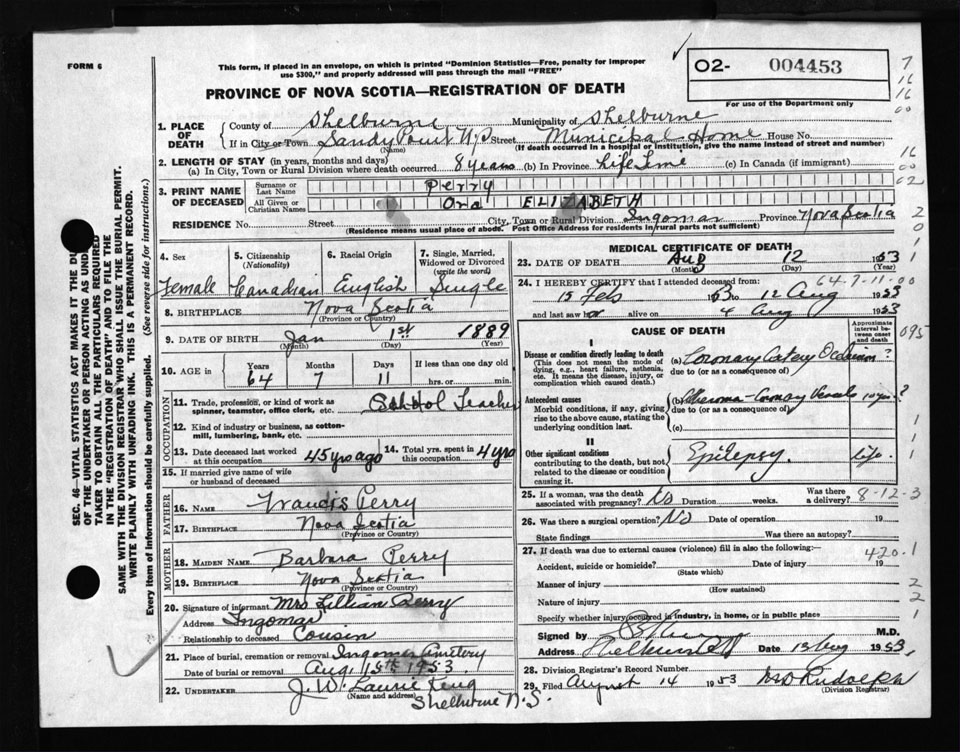 FORM 6
This form, if placed in an envelope, on which is printed "Dominion Statistics—Free, penalty for improper
use $300," and properly addressed will pass through the mail "FREE"
PROVINCE OF NOVA SCOTIA—REGISTRATION OF DEATH
O2- 004453
For use of the Department only
7
16
16
00
16
00
02
2
0
1
1. PLACE OF DEATH { County of Shelburne Municipality of Shelburne
If in City or Town Sandy Point N.S. Street Municipal Home House No.
(Name) (If death occurred in a hospital or institution, give the name instead of street and number)
2. LENGTH OF STAY (in years, months and days)
(a) In City, Town or Rural Division where death occurred 8 years (b) In Province Life Time (c) In Canada (if immigrant)
3. PRINT NAME OF DECEASED { Surname or Last Name Perry
All Given or Christian Names Ora ELIZABETH
RESIDENCE No. Street City, Town or Rural Division Ingomar Province Nova Scotia
(Residence means usual place of abode. Post Office Address for residents in rural parts not sufficient)
SEC. 46—VITAL STATISTICS ACT MAKES IT THE
OF THE UNDERTAKER OR PERSON ACTING AS
TAKER TO OBTAIN ALL THE PARTICULARS REQUIRED
IN THE "REGISTRATION OF DEATH" AND TO FILE THE
SAME WITH THE DIVISION REGISTRAR WHO SHALL ISSUE THE BURIAL PERMIT.
WRITE PLAINLY WITH UNFADING INK. THIS IS A PERMANENT RECORD.
Every item of Information should be carefully supplied. (See reverse side for instructions.)
4. Sex 5. Citizenship (Nationality) 6. Racial Origin 7. Single, Married, Widowed or Divorced (write the word)
Female Canadian English Single
8. BIRTHPLACE Nova Scotia
(Province or Country)
9. DATE OF BIRTH Jan 1st 1889
(Month) (Day) (Year)
10. AGE in { Years Months Days If less than one day old
64 7 11 hrs. or min.
OCCUPATION
11. Trade, profession, or kind of work as spinner, teamster, office clerk, etc. School Teacher
12. Kind of industry or business, as cotton-mill, lumbering, bank, etc.
13. Date deceased last worked at this occupation 45 yrs ago 14. Total yrs. spent in this occupation 4 yrs
15. If married give name of wife or husband of deceased
FATHER
16. NAME Francis Perry
17. BIRTHPLACE Nova Scotia
(Province or Country)
MOTHER
18. MAIDEN NAME Barbara Perry
19. BIRTHPLACE Nova Scotia
(Province or Country)
20. Signature of informant Mrs Lillian Perry
Address Ingomar
Relationship to deceased Cousin
21. Place of burial, cremation or removal Ingomar Cemetery
Date of burial or removal Aug. 15th 1953
22. UNDERTAKER J. W. Laurie King
(Name and address) Shelburne N.S.
MEDICAL CERTIFICATE OF DEATH
23. DATE OF DEATH Aug 12 1953
(Month) (Day) (Year)
64-7-11-00
24. I HEREBY CERTIFY that I attended deceased from:
15 Feb 1953 to 12 Aug 1953
and last saw her alive on 4 Aug 1953
CAUSE OF DEATH
Approximate interval between onset and death
095
I
Disease or condition directly leading to death (a) Coronary Artery Occlusion ?
(This does not mean the mode of dying, e.g., heart failure, asthenia, etc. It means the disease, injury, or complication which caused death.) due to (or as a consequence of)
Antecedent causes (b) Atheroma - Coronary Vessels 10 yrs. ?
Morbid conditions, if any, giving rise to the above cause, stating the underlying condition last. due to (or as a consequence of)
(c)
II
Other significant conditions Epilepsy life.
contributing to the death, but not related to the disease or condition causing it.
25. If a woman, was the death associated with pregnancy? No Duration weeks. Was there a delivery? 8-12-3
26. Was there a surgical operation? No Date of operation 19
State findings Was there an autopsy?
27. If death was due to external causes (violence) fill in also the following:—
420.1
Accident, suicide or homicide? Date of injury 19
(State which)
Manner of injury
(How sustained)
Nature of injury
Specify whether injury occurred in industry, in home, or in public place
Signed by M.D.
Address Date 13 Aug 1953
28. Division Registrar's Record Number
29. Filed August 14 1953 Rudolph
(Division Registrar)